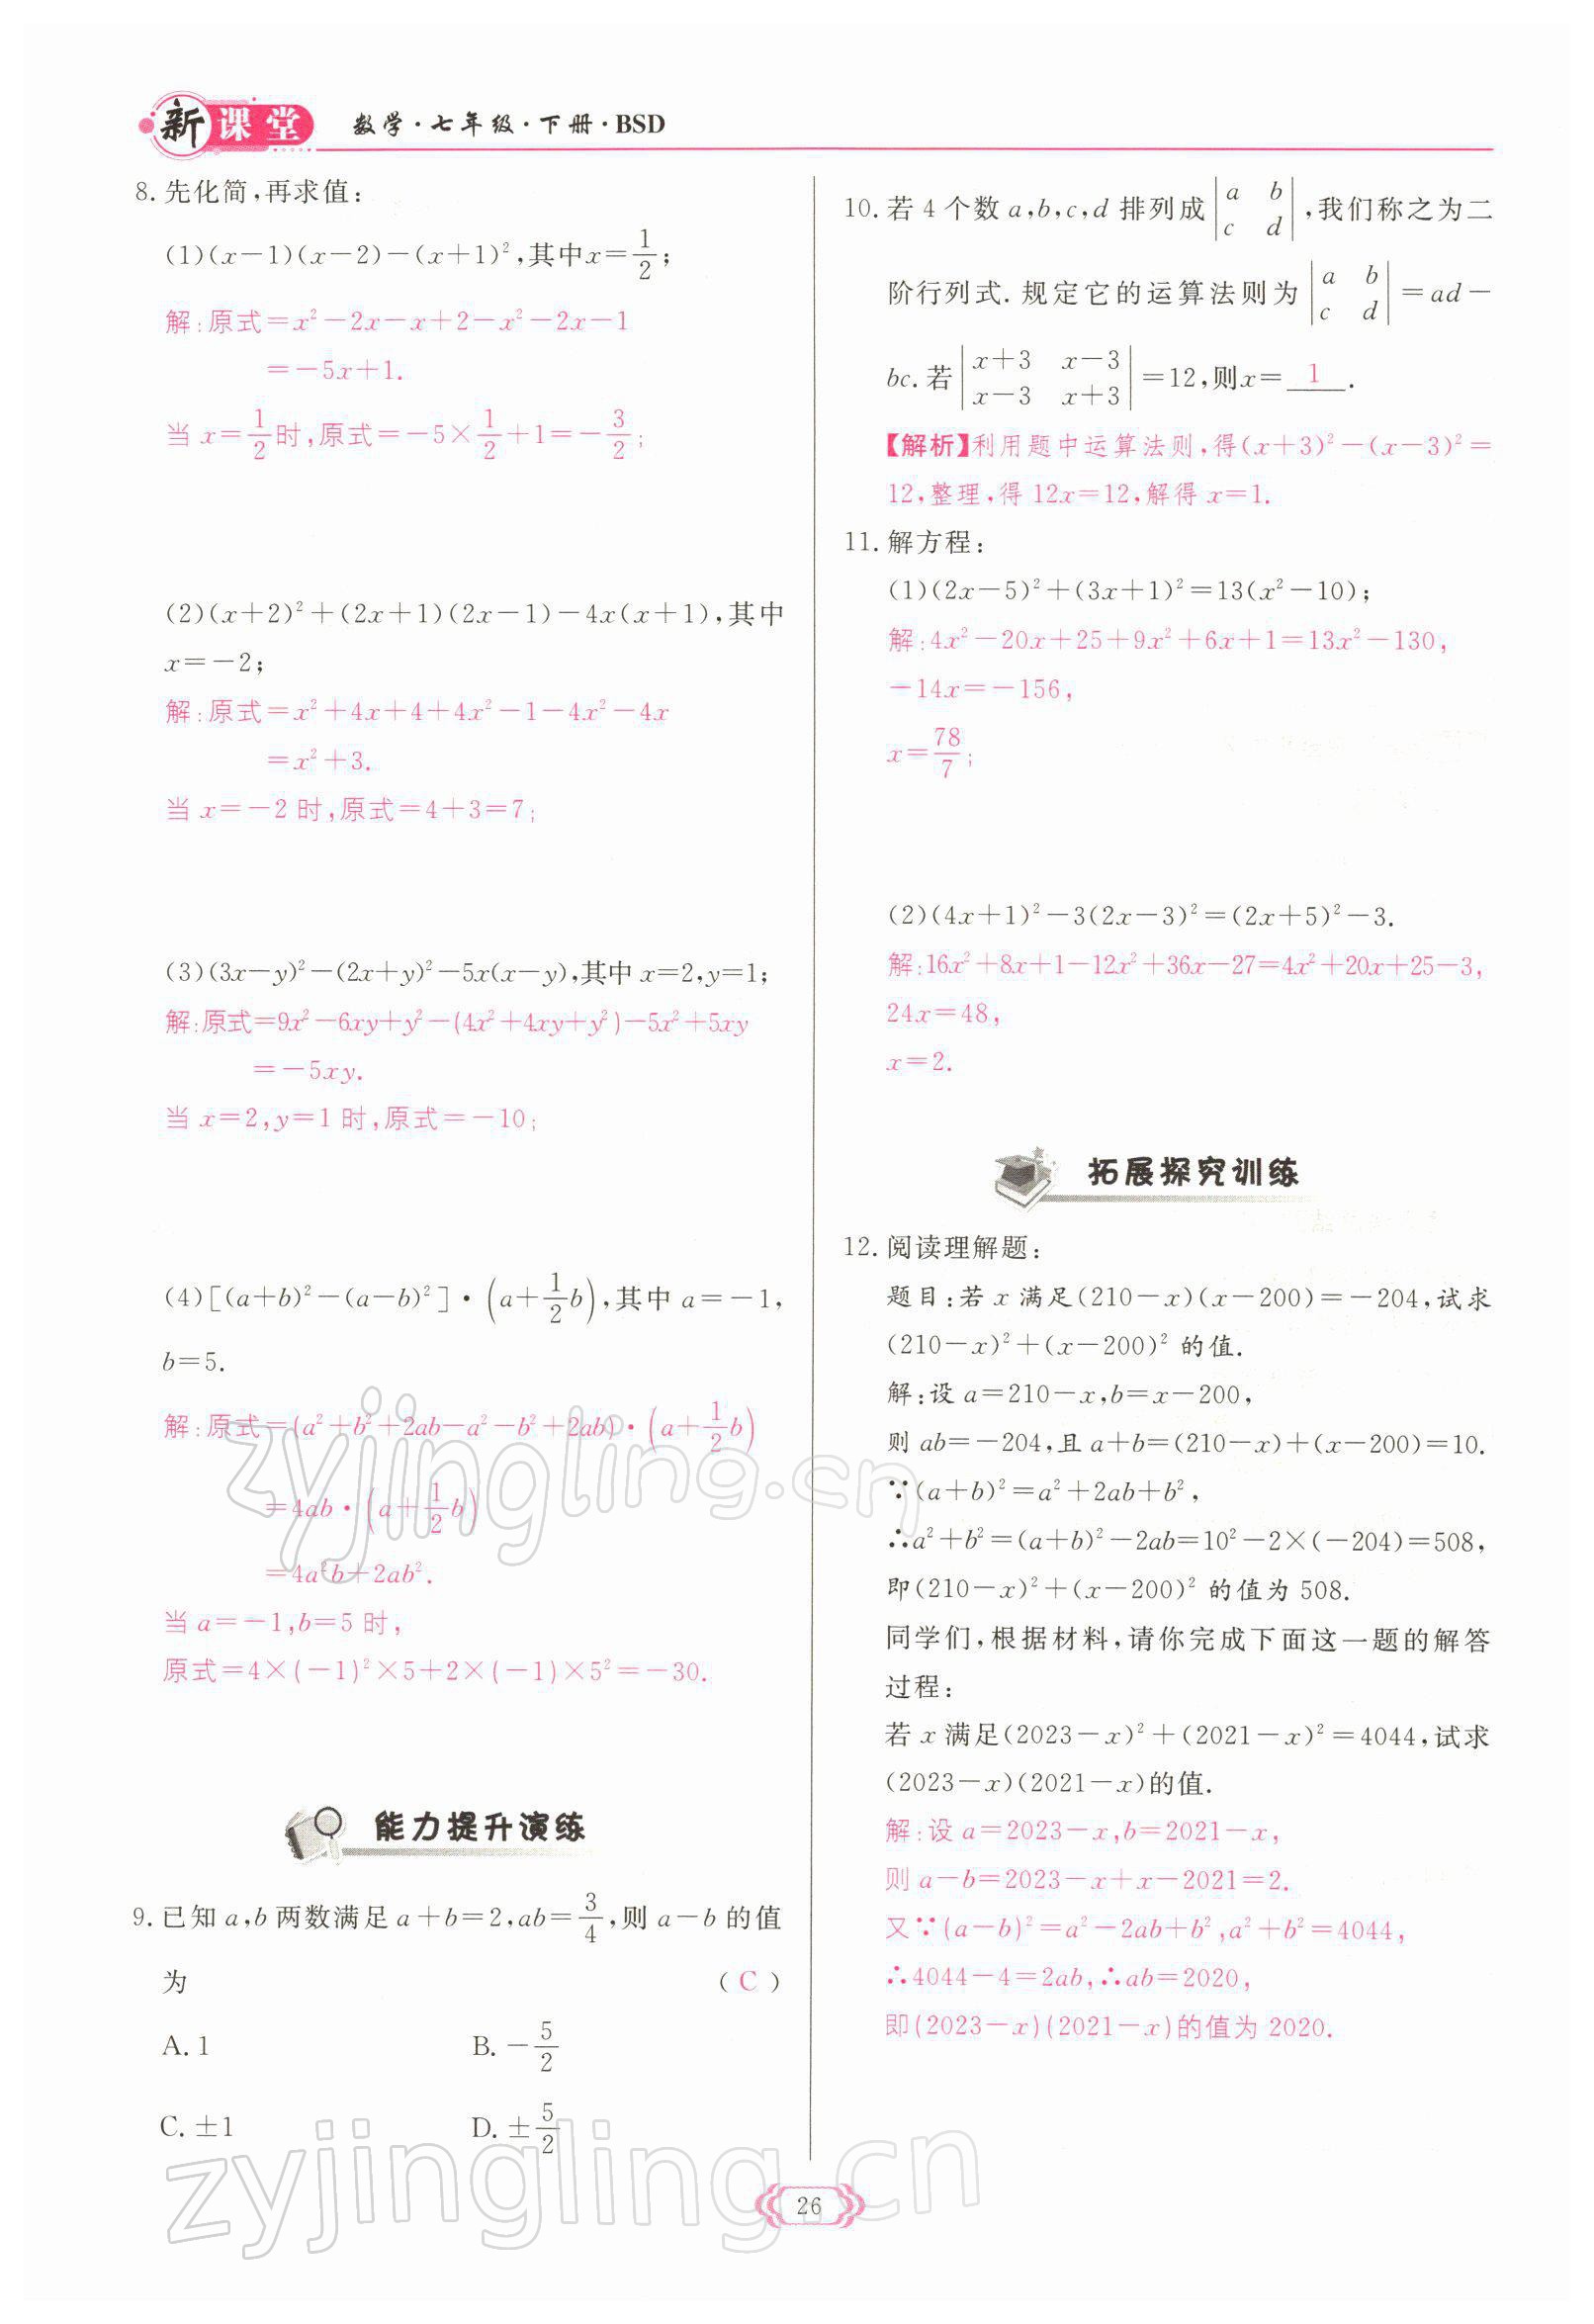 新课堂 数学·七年级·下册·BSD
8. 先化简,再求值:
(1)(x-1)(x-2)-(x+1)²,其中x=1/2;
解:原式=x²-2x-x+2-x²-2x-1
=-5x+1.
当 x=1/2时,原式=-5×1/2+1=-3/2;
(2)(x+2)²+(2x+1)(2x-1)-4x(x+1),其中
x=-2;
解:原式=x²+4x+4+4x²-1-4x²-4x
=x²+3.
当 x=-2 时,原式=4+3=7;
(3)(3x-y)²-(2x+y)²-5x(x-y),其中 x=2,y=1;
解:原式=9x²-6xy+y²-(4x²+4xy+y²)-5x²+5xy
=-5xy.
当 x=2,y=1 时,原式=-10;
(4)[(a+b)²-(a-b)²]·(a+1/2b),其中 a=-1,
b=5.
解:原式=(a²+b²+2ab-a²-b²+2ab)·(a+1/2b)
=4ab·(a+1/2b)
=4a²b+2ab².
当 a=-1,b=5 时,
原式=4×(-1)²×5+2×(-1)×5²=-30.
能力提升演练
9. 已知 a,b 两数满足 a+b=2,ab=3/4,则 a-b 的值
为 ( C )
A. 1 B. -5/2
C. ±1 D. ±5/2
10. 若 4 个数 a,b,c,d 排列成|a b; c d|,我们称之为二
阶行列式. 规定它的运算法则为|a b; c d|=ad-
bc. 若|x+3 x-3; x-3 x+3|=12,则x= 1 .
【解析】利用题中运算法则,得(x+3)²-(x-3)²=
12,整理,得 12x=12,解得 x=1.
11. 解方程:
(1)(2x-5)²+(3x+1)²=13(x²-10);
解:4x²-20x+25+9x²+6x+1=13x²-130,
-14x=-156,
x=78/7;
(2)(4x+1)²-3(2x-3)²=(2x+5)²-3.
解:16x²+8x+1-12x²+36x-27=4x²+20x+25-3,
24x=48,
x=2.
拓展探究训练
12. 阅读理解题:
题目:若 x 满足(210-x)(x-200)=-204,试求
(210-x)²+(x-200)² 的值.
解:设 a=210-x,b=x-200,
则 ab=-204,且 a+b=(210-x)+(x-200)=10.
∵(a+b)²=a²+2ab+b²,
∴a²+b²=(a+b)²-2ab=10²-2×(-204)=508,
即(210-x)²+(x-200)² 的值为 508.
同学们,根据材料,请你完成下面这一题的解答
过程:
若 x 满足(2023-x)²+(2021-x)²=4044,试求
(2023-x)(2021-x)的值.
解:设 a=2023-x,b=2021-x,
则 a-b=2023-x+x-2021=2.
又∵(a-b)²=a²-2ab+b²,a²+b²=4044,
∴4044-4=2ab,∴ab=2020,
即(2023-x)(2021-x)的值为 2020.
zyjingling.cn
zyjingling.cn
26